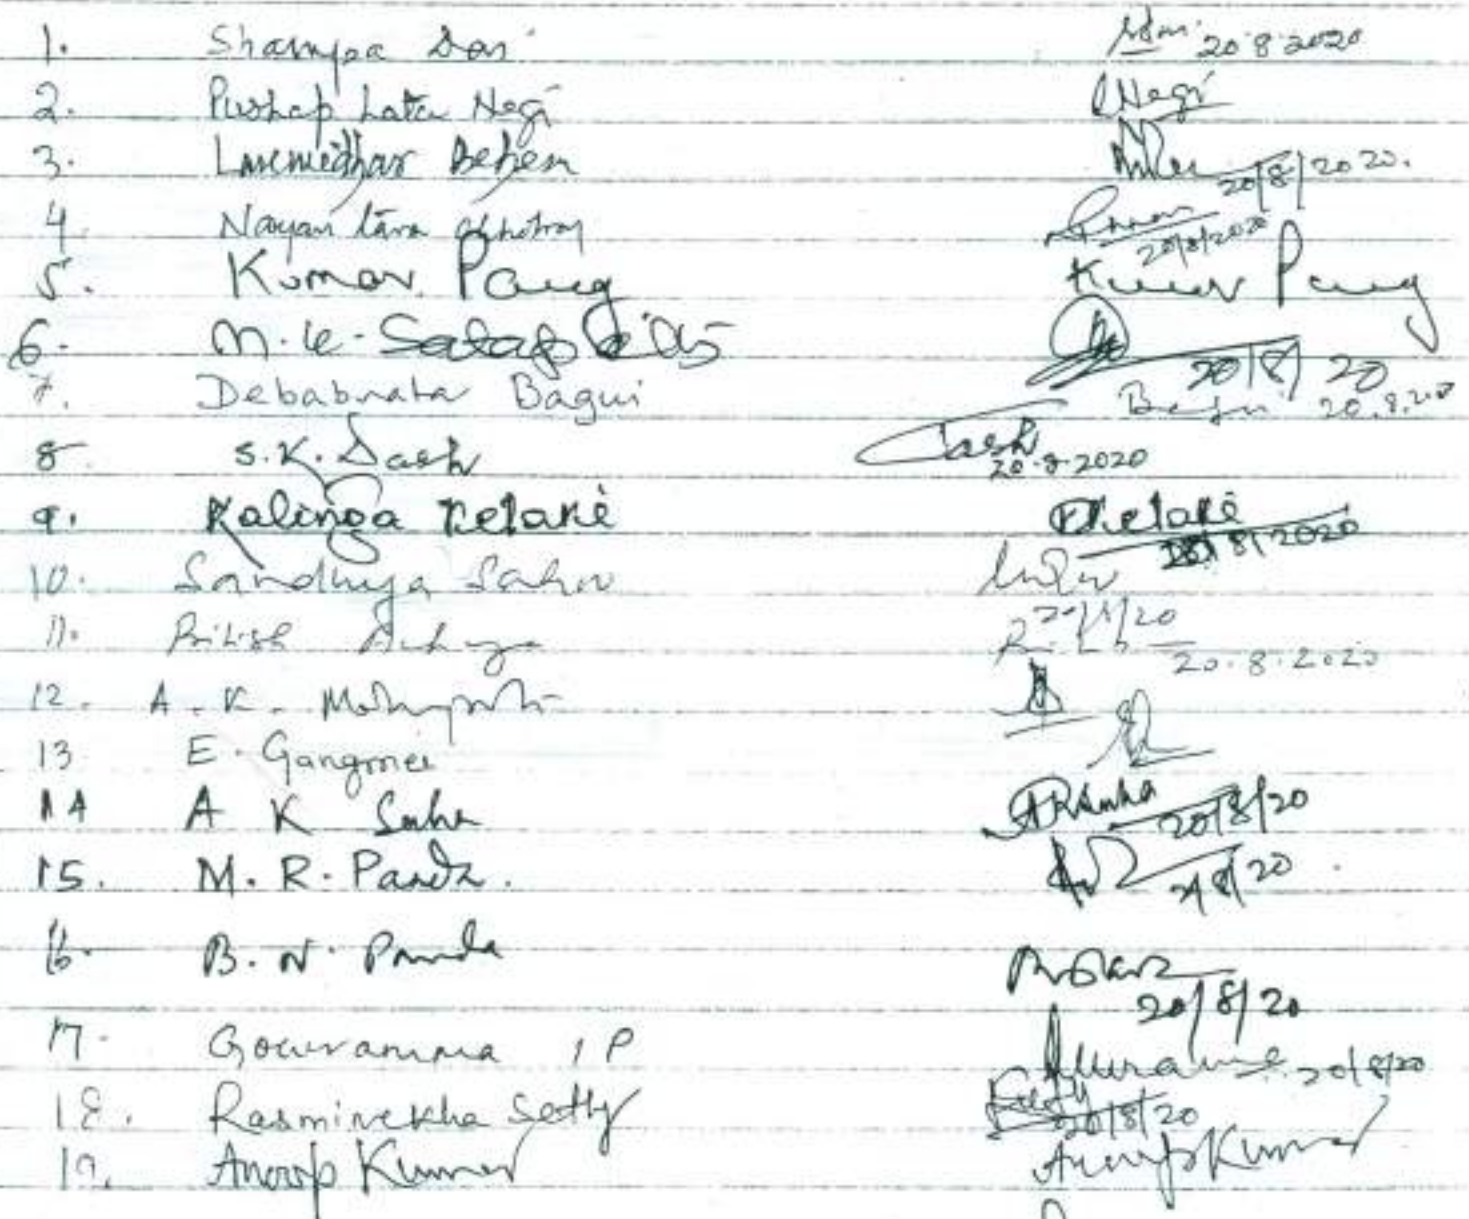 1. Shampa Das 20.8.2020
2. Pushap Lata Negi Negi
3. Laxmidhar Behera 20/8/2020.
4. Nayan tara 20/8/2020
5. Kumar Parag Kumar Parag
6. M.K. 20/8/20
7. Debabrata Bagui Bagui 20.8.20
8. S.K. Dash Dash 20.8.2020
9. Kalinga Ketaki Ketaki 20/8/2020
10. Sandhya Sahu 20/8/20
11. Ritish 20.8.2020
12. A. K. Mohapatra
13 E. Gangmei
14 A K Sinha AKSinha 20/8/20
15. M. R. Panda. 20/8/20
16. B. N. Panda 20/8/20
17. Gowramma I P 20/8/20
18. Rasmirekha Sethy 20/8/20
19. Anoop Kumar Anoop Kumar